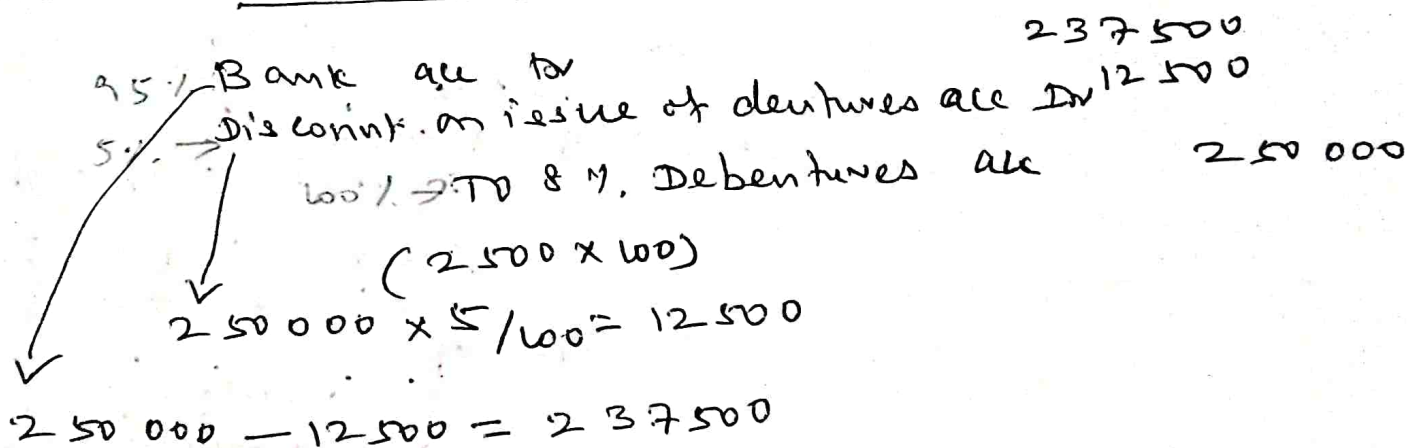 95% Bank a/c Dr 237500
5% → Discount on issue of dentures acc Dr 12500
100% → TO 8 %. Debentures a/c 250 000
(2500 x 100)
250000 x 5/100 = 12500
250 000 — 12500 = 237500